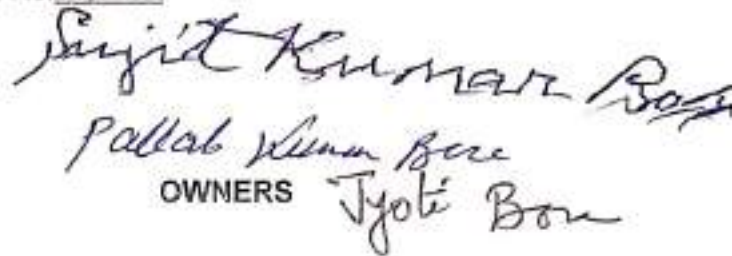 Sujit Kumar Bose
Pallab Kumar Bose
OWNERS Jyoti Bose